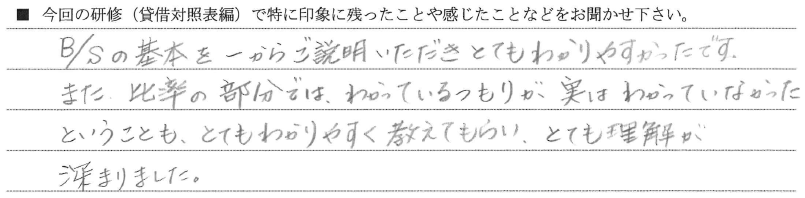 ■ 今回の研修（貸借対照表編）で特に印象に残ったことや感じたことなどをお聞かせ下さい。
B/Sの基本を一からご説明いただきとてもわかりやすかったです.
また、比率の部分では、わかっているつもりが、実はわかっていなかった
ということも、とてもわかりやすく教えてもらい、とても理解が
深まりました。